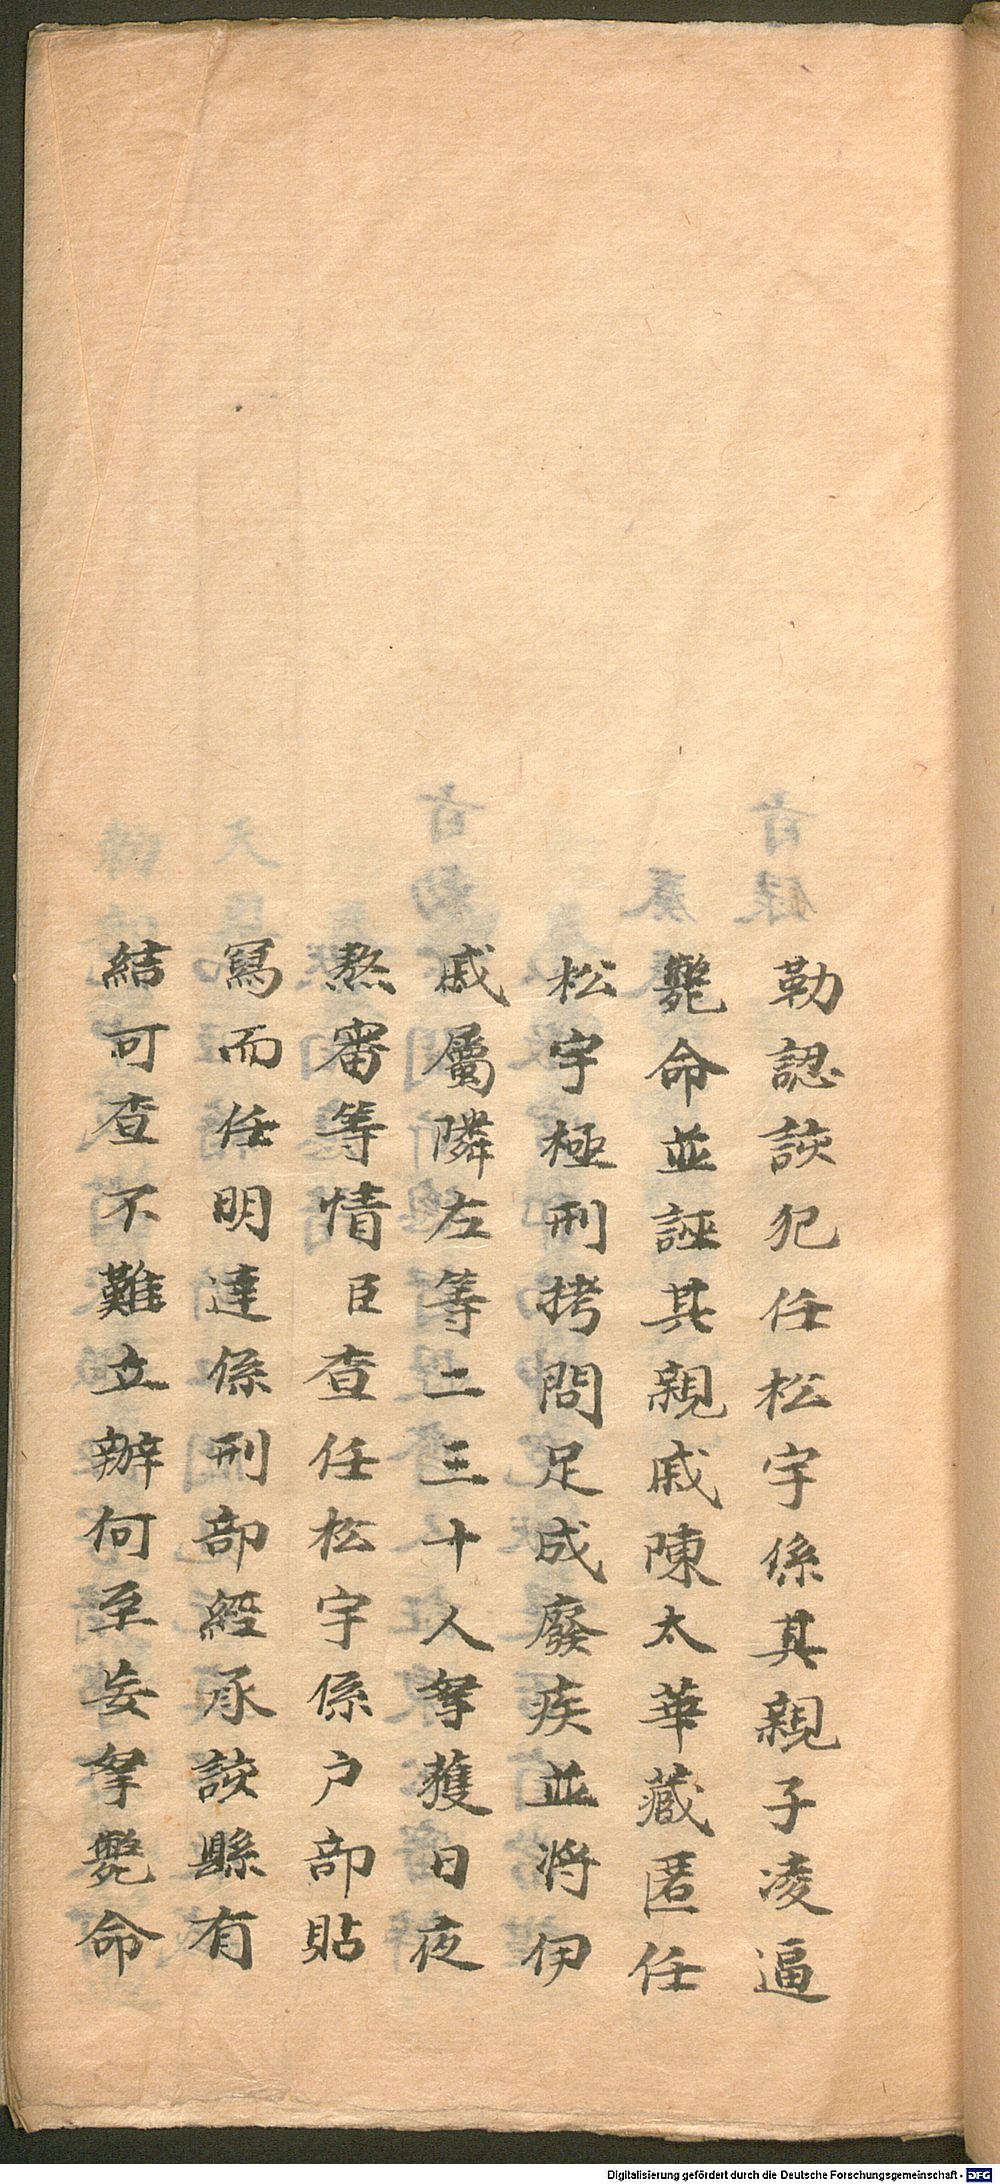 勒認該犯任松宇係其親子凌逼
斃命並誣其親戚陳太華藏匿任
松宇極刑拷問足成廢疾並將伊
戚屬隣左等二三十人拏獲日夜
熬審等情臣查任松宇係户部貼
寫而任明達係刑部經承該縣有
結可查不難立辦何至妄拏斃命
Digitalisierung gefördert durch die Deutsche Forschungsgemeinschaft - DFG